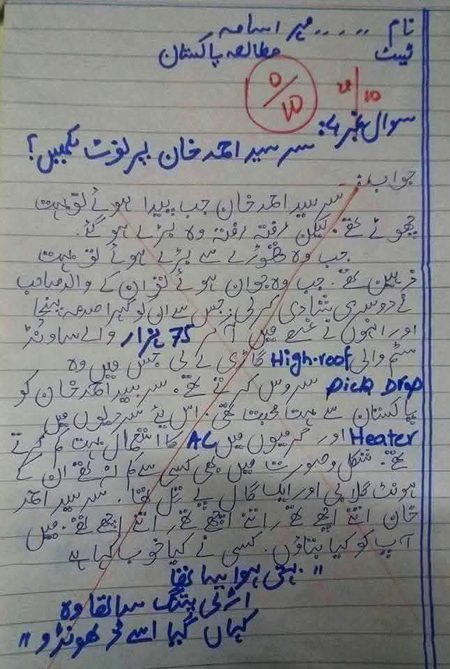 نام ..... میر اسامہ
ٹیسٹ مطالعہ پاکستان
0/10
10
سوال نمبر 4: سر سید احمد خان پر نوٹ لکھیں؟
جواب:- سر سید احمد خان جب پیدا ہوئے تو بہت
چھوٹے تھے۔ لیکن رفتہ رفتہ وہ بڑے ہو گئے۔
جب وہ تھوڑے سے بڑے ہوئے تو بہت
ذہین تھے۔ جب وہ جوان ہوئے تو ان کے والد صاحب
نے دوسری شادی کر لی۔ جس سے ان کو گہرا صدمہ پہنچا
اور انہوں نے غصے میں آ کر 75 ہزار والے ساونڈ
سٹم والی High-roof گاڑی لے لی جس میں وہ
Pick Drop سروس کرتے تھے۔ سر سید احمد خان کو
پاکستان سے بہت محبت تھی۔ اس لیے سردیوں میں
Heater اور گرمیوں میں AC کا استعمال بہت کم کرتے
تھے۔ شکل و صورت میں بھی کسی سے کم نہ تھے ان کے
ہونٹ گلابی اور ایک گال پے تل تھا۔ سر سید احمد
خان اتنے اچھے تھے اتنے اچھے تھے اتنے اچھے تھے۔ میں
آپ کو کیا بتاؤں۔ کسی نے کیا خوب کہا ہے
"بہتی ہوا سا تھا
اڑتی پتنگ سا تھا وہ
کہاں گیا اسے ڈھونڈو"